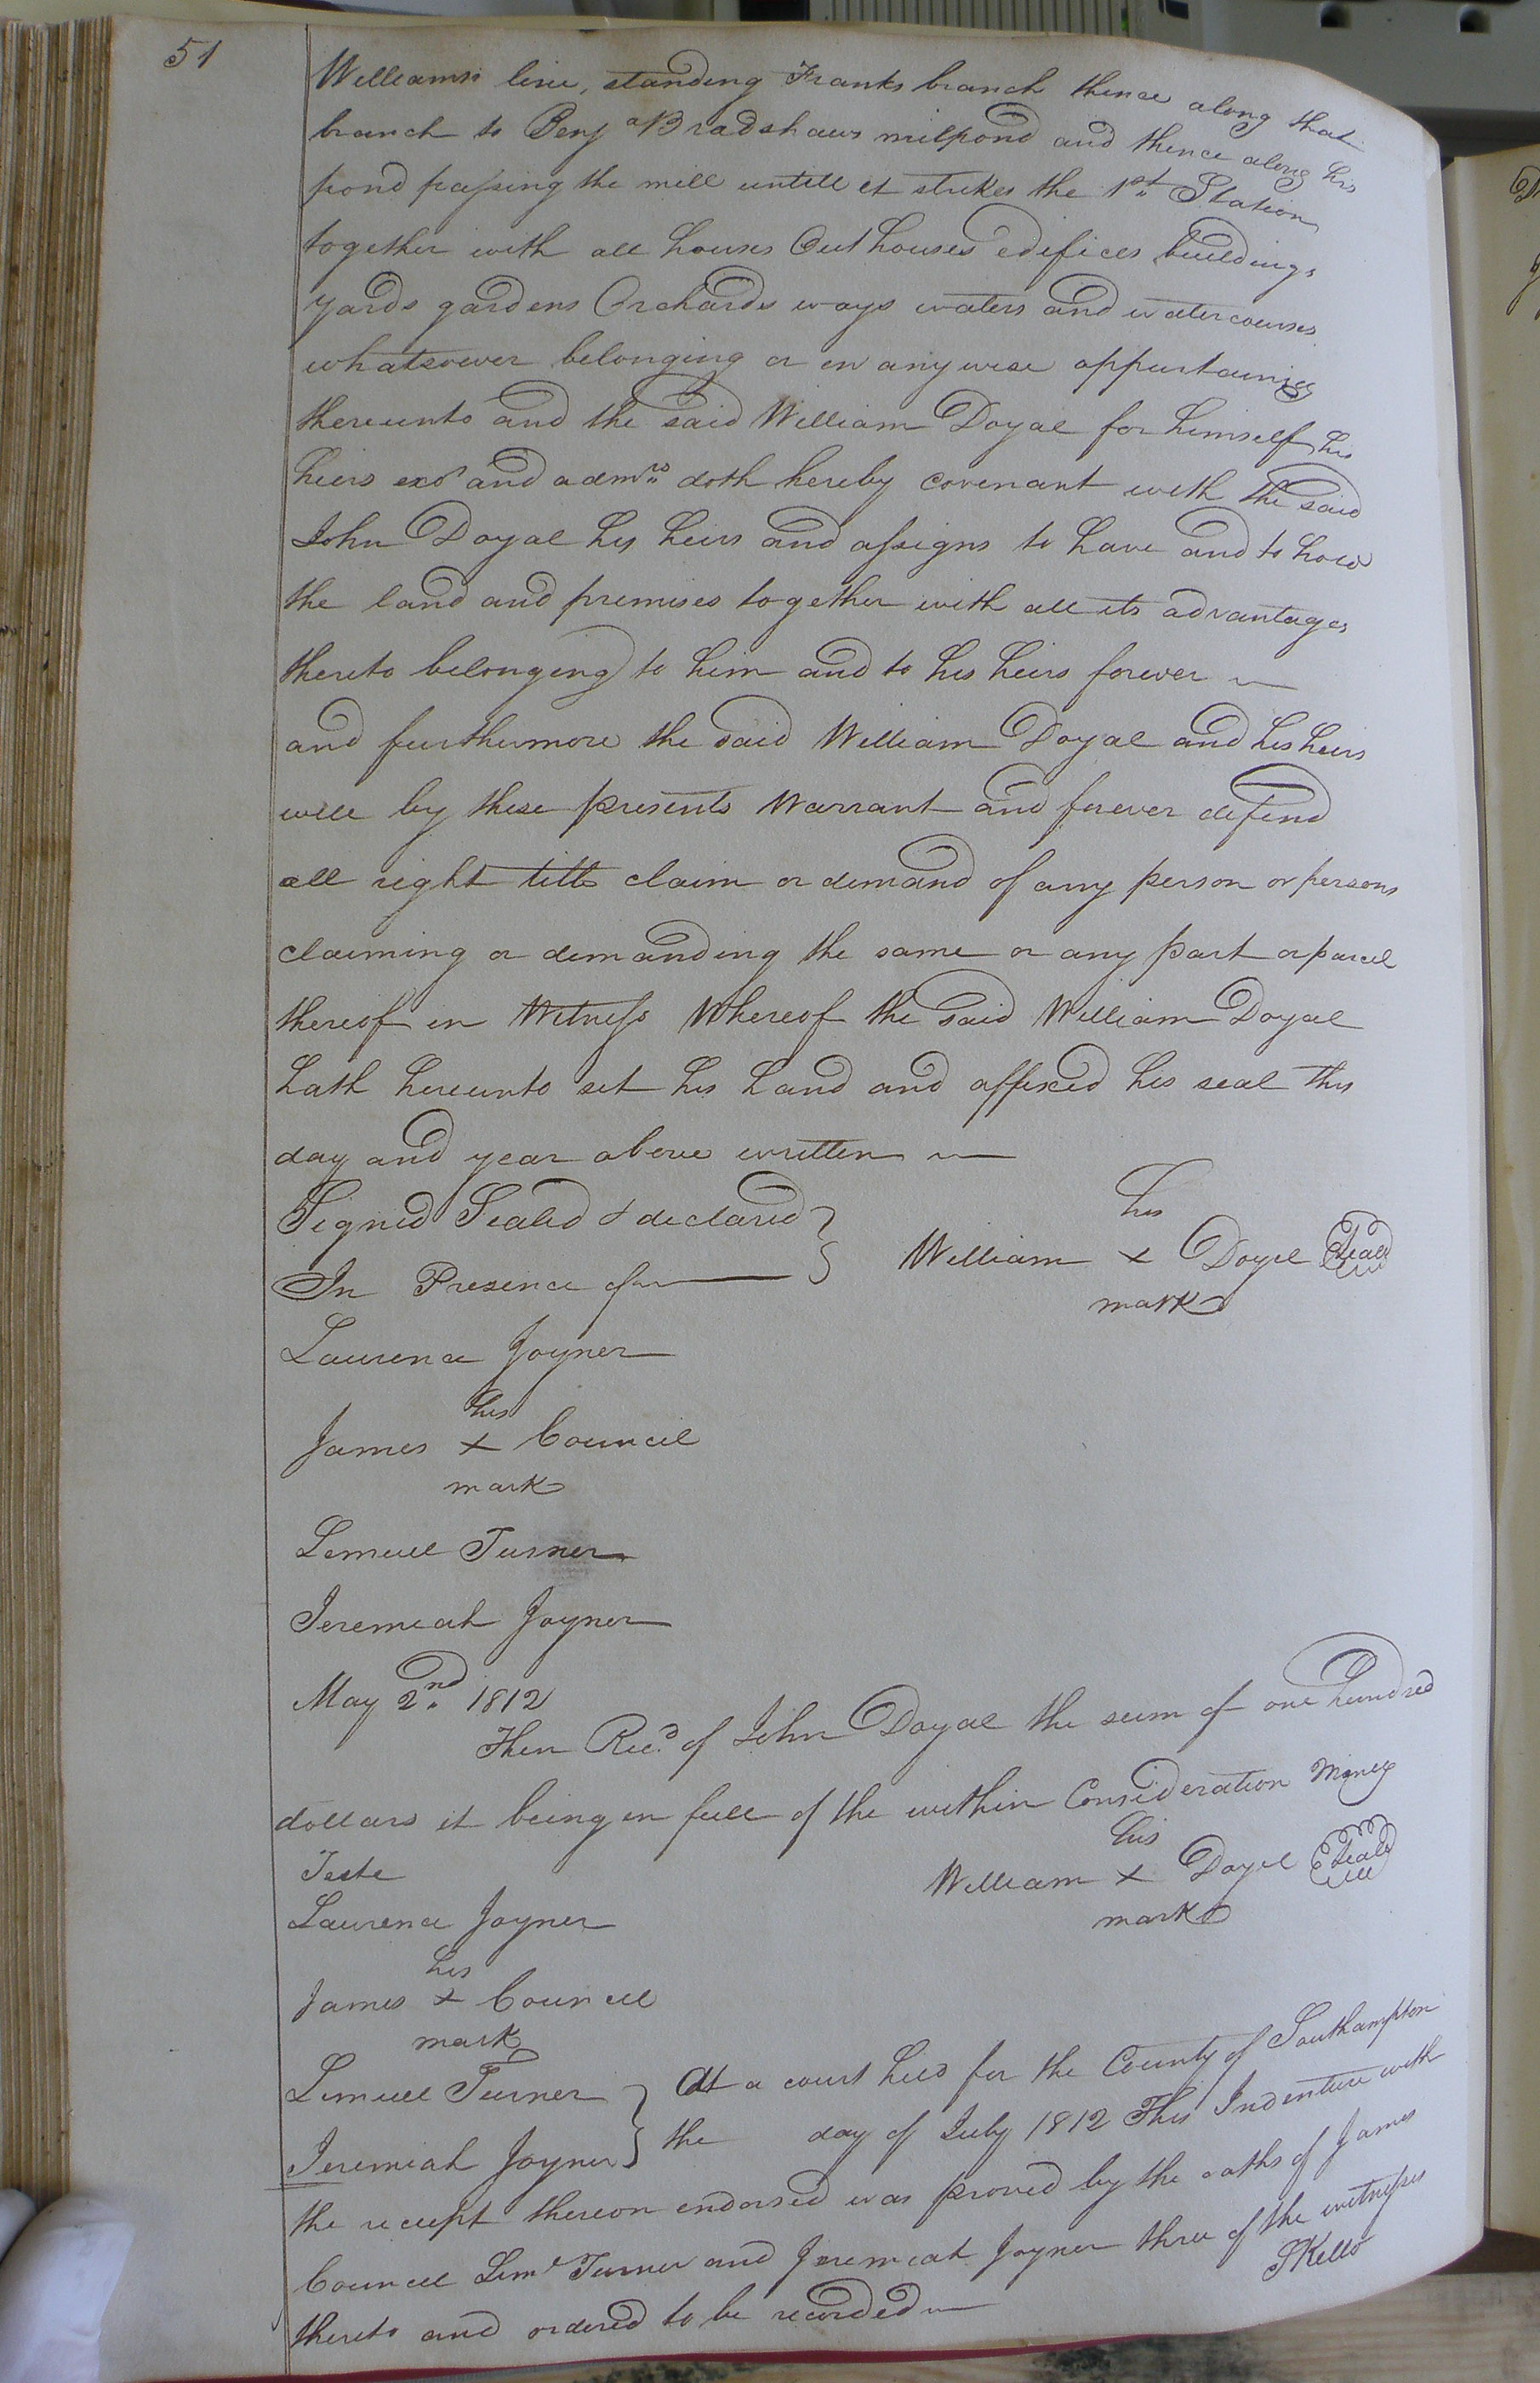 51
Williams's line, standing Franks branch thence along that
branch to Benjᵃ Bradshaws milpond and thence along his
pond passing the mill untill it strikes the 1st Station
together with all houses Outhouses edifices buildings
yards gardens Orchards ways waters and watercourses
whatsoever belonging or in anywise appurtaining
thereunto and the said William Doyal for himself his
heirs exrs and admrs doth hereby covenant with the said
John Doyal his heirs and assigns to have and to hold
the land and premises together with all its advantages
thereto belonging to him and to his heirs forever
and furthermore the said William Doyal and his heirs
will by these presents Warrant and forever defend
all right title claim or demand of any person or persons
claiming or demanding the same or any part or parcel
thereof in Witness Whereof the said William Doyal
hath hereunto set his hand and affixed his seal this
day and year above written
Signed Sealed & declared
In Presence of
his
William x Doyel Seal
mark
Laurence Joyner
his
James x Council
mark
Lemuel Turner
Jeremiah Joyner
May 2nd 1812
Then Recd of John Doyal the sum of one hundred
dollars it being in full of the within Consideration Money
Teste
his
William x Doyel Seal
mark
Laurence Joyner
his
James x Councel
mark
Lemuel Turner
Jeremiah Joyner
At a court held for the County of Southampton
the day of July 1812 This Indenture with
the receipt thereon endorsed was proved by the oaths of James
Councel Leml Turner and Jeremiah Joyner three of the witnesses
thereto and ordered to be recorded
SKello